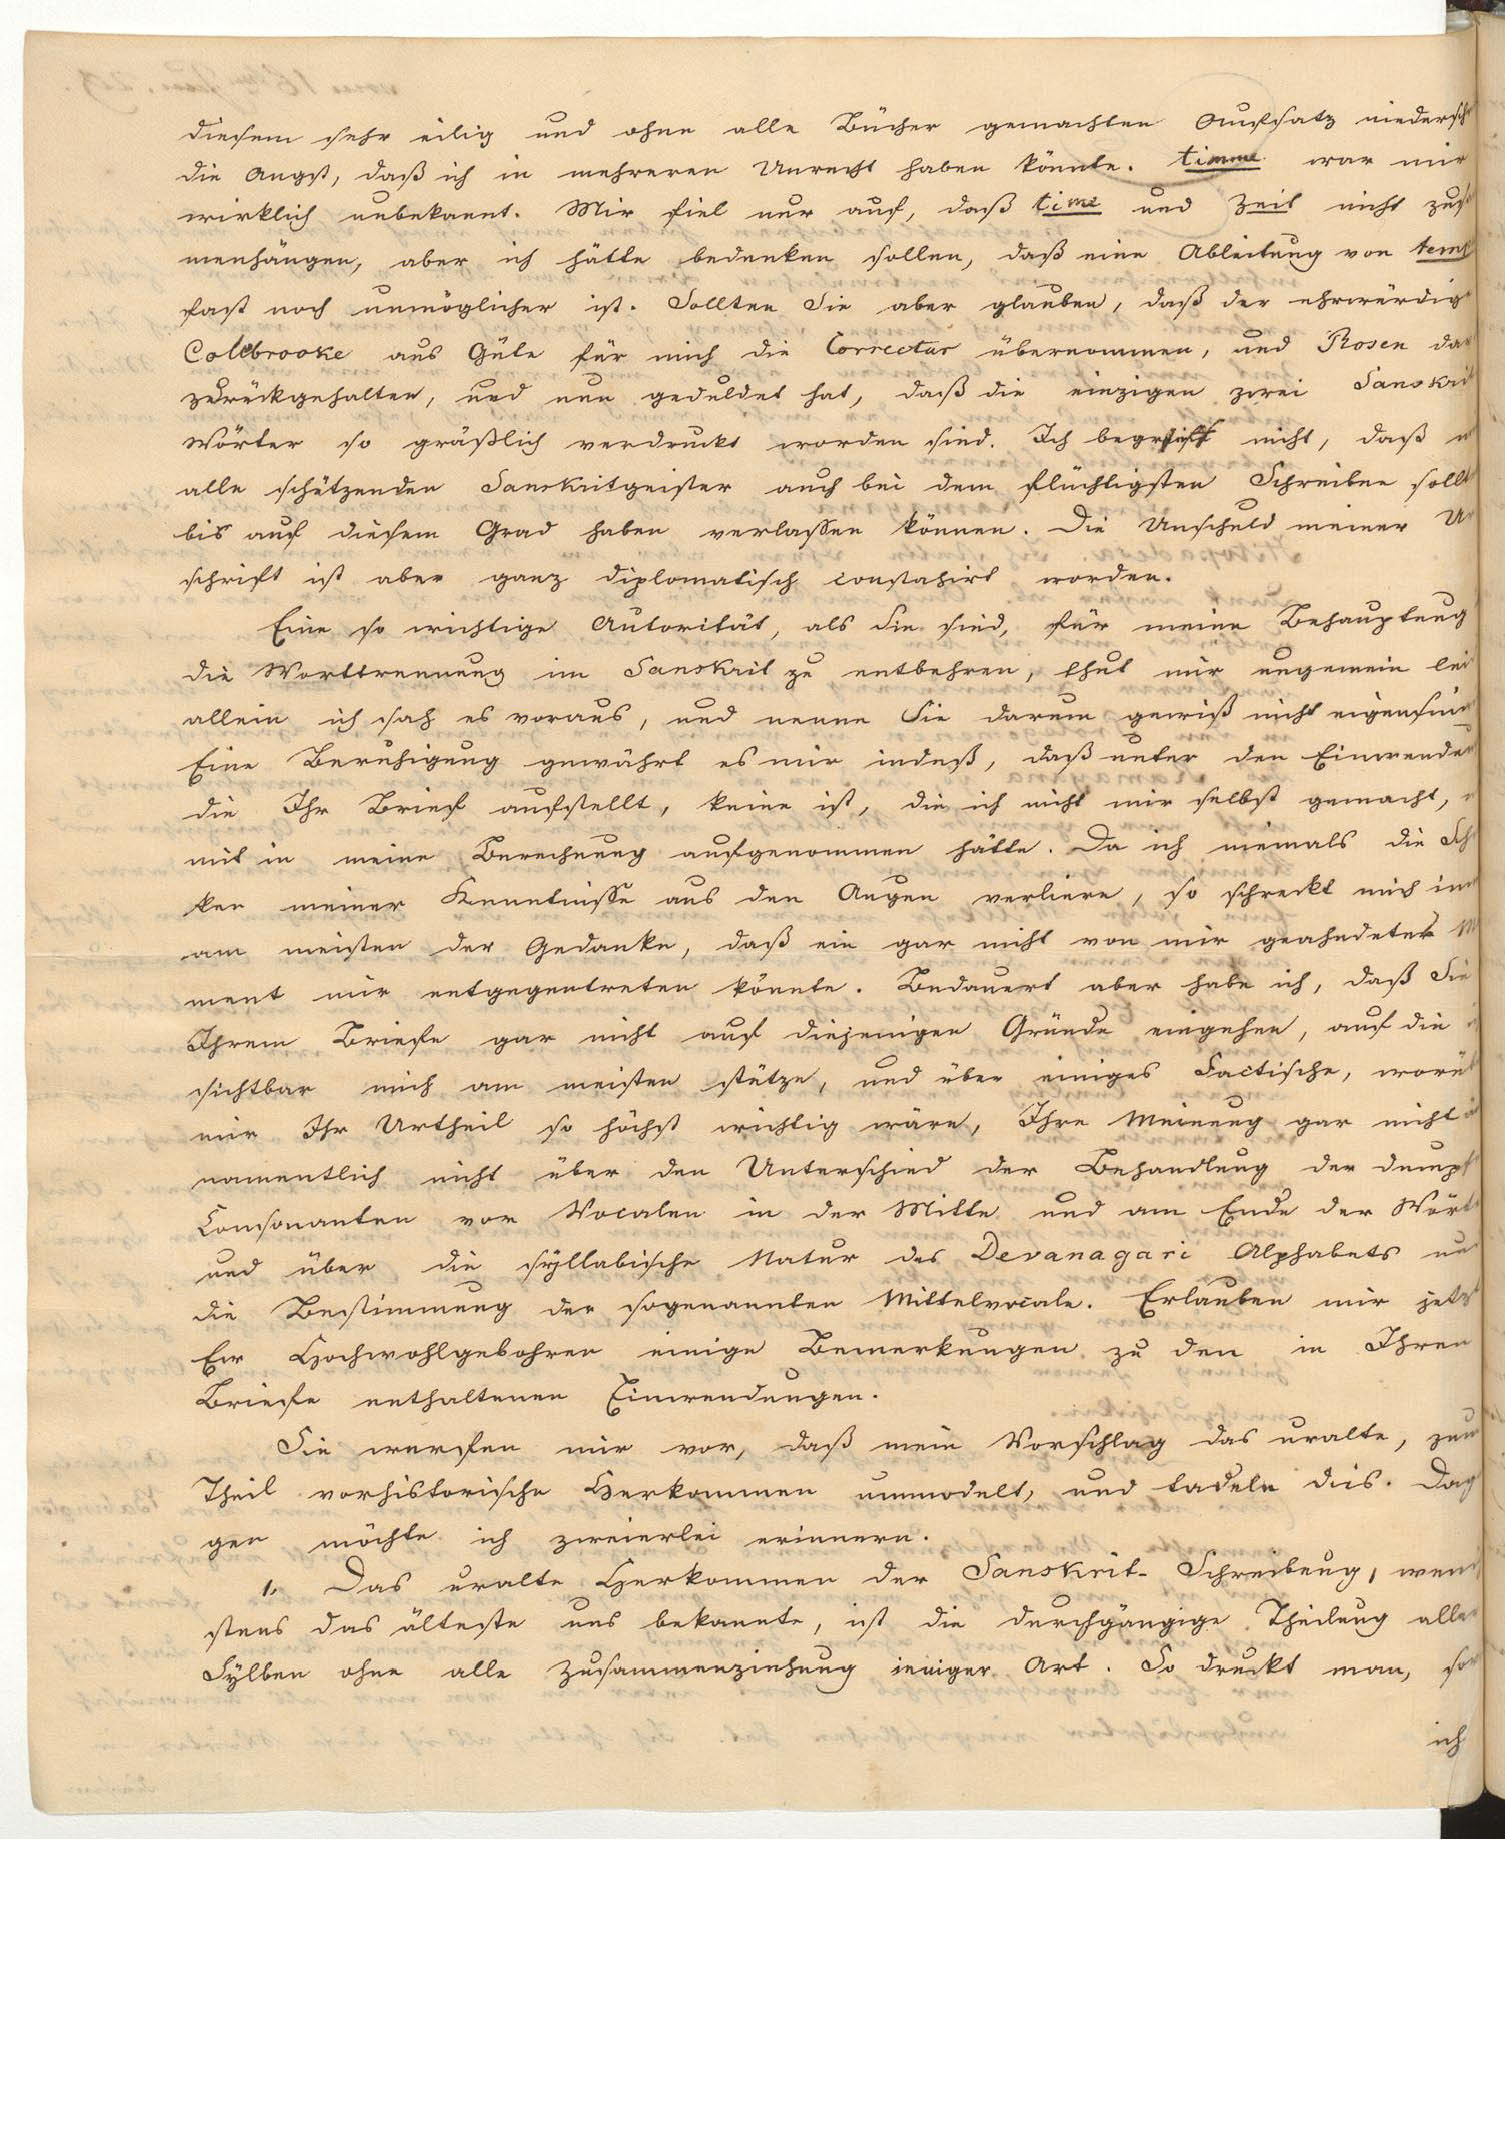 diesem sehr eilig und ohne alle Bücher gemachten Aufsatz niedersch
die Angst, daß ich in mehreren Unrecht haben könnte. timme war mir
wirklich unbekannt. Mir fiel nur auf, daß time und Zeit nicht zus
menhängen, aber ich hätte bedenken sollen, daß eine Ableitung von temp
fast noch unmöglicher ist. Sollten Sie aber glauben, daß der ehrwürdig
Colebrooke aus Güte für mich die Correctur übernommen, und Rosen da
zurückgehalten, und nun geduldet hat, daß die einzigen zwei Sanskrit
Wörter so gräßlich verdruckt worden sind. Ich begriff nicht, daß m
alle schützenden Sanskritgeister auch bei dem flüchtigsten Schreiben sollt
bis auf diesem Grad haben verlassen können. Die Unschuld meiner Ur
schrift ist aber ganz diplomatisch constatirt worden.
Eine so wichtige Autorität, als Sie sind, für meine Behauptung
die Worttrennung im Sanskrit zu entbehren, thut mir ungemein lei
allein ich sah es voraus, und nenne Sie darum gewiß nicht eigensin
Eine Beruhigung gewährt es mir indeß, daß unter den Einwendu
die Ihr Brief aufstellt, keine ist, die ich nicht mir selbst gemacht,
mit in meine Berechnung aufgenommen hätte. Da ich niemals die Sch
ken meiner Kenntnisse aus den Augen verliere, so schreckt mich im
am meisten der Gedanke, daß ein gar nicht von mir geahndeter M
ment mir entgegentreten könnte. Bedauert aber habe ich, daß Sie
Ihrem Briefe gar nicht auf diejenigen Gründe eingehen, auf die
sichtbar mich am meisten stütze, und über einiges Factische, worüb
mir Ihr Urtheil so höchst wichtig wäre, Ihre Meinung gar nicht
namentlich nicht über den Unterschied der Behandlung der dumpf
Consonanten vor Vocalen in der Mitte und am Ende der Wört
und über die syllabische Natur des Devanagari Alphabets un
die Bestimmung der sogenannten Mittelvocale. Erlauben mir jetzt
Ew Hochwohlgebohren einige Bemerkungen zu den in Ihren
Briefe enthaltenen Einwendungen.
Sie werfen mir vor, daß mein Vorschlag das uralte, zum
Theil vorhistorische Herkommen ummodelt, und tadeln dies. Dag
gen möchte ich zweierlei erinnern.
1. Das uralte Herkommen der Sanskrit-Schreibung, weni
stens das älteste uns bekannte, ist die durchgängige Theilung aller
Sylben ohne alle Zusammenziehung einiger Art. So druckt man, so
ich